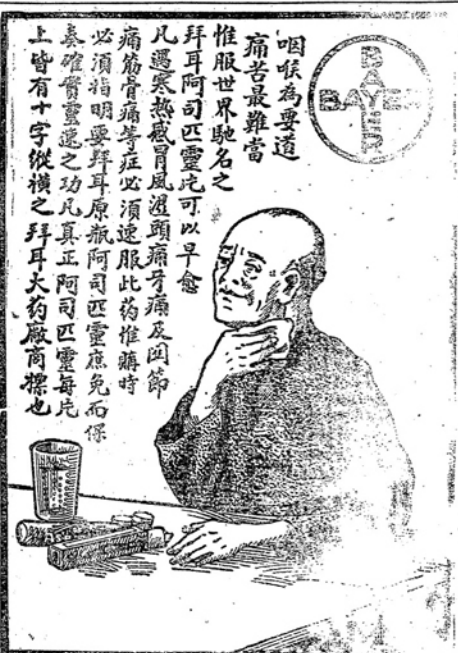 BAYER
BAYER
咽喉為要道
痛苦最難當
惟服世界馳名之
拜耳阿司匹靈片可以早愈
凡遇寒熱感冒風濕頭痛牙痛及関節
痛筋骨痛等症必須速服此药惟購時
必須指明要拜耳原瓶阿司匹靈庶免而保
奏確實靈速之功凡真正阿司匹靈每片
上皆有十字縱橫之拜耳大药廠商標也